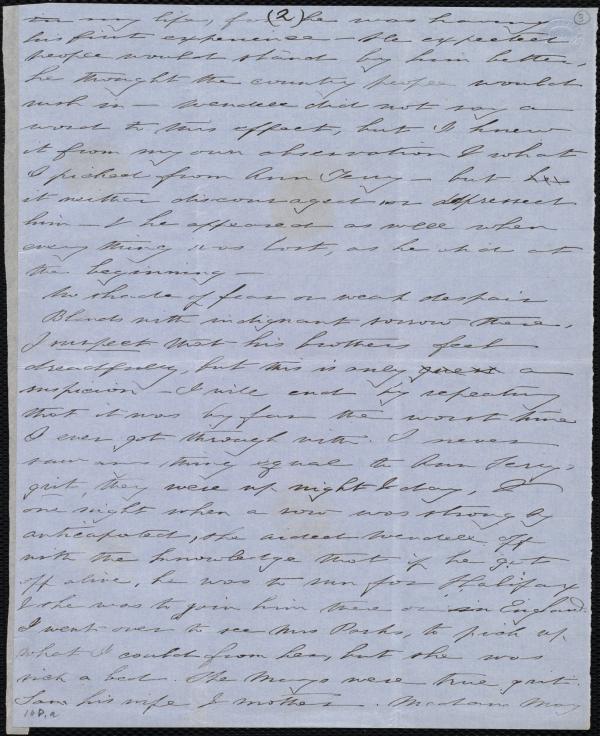 (2)
3
in my life, for he was having
his first experience – He expected
people would stand by him better,
he thought the country people would
rush in – Wendell did not say a
word to this effect, but I knew
it from my own observation & what
I picked from Ann Terry – but
it neither discouraged nor depressed
him – & he appeared as well when
every thing was lost, as he did at
the beginning –
No shade of fear or weak despair
Blends with indignant sorrow there,
I suspect that his brothers feel
dreadfully, but this is only a
suspicion – I will end by repeating
that it was by far the worst time
I ever got through with. I never
saw any thing equal to Ann Terry's
grit, they were up night & day, &
one night when a row was strongly
anticapated, she aided Wendell off
with the knowledge that if he got
off alive, he was to run for Halifax
& she was to join him there or in England.
I went over to see Mrs Parks, to pick up
what I could from her, but she was
sick a bed. The Mays were true grit.
Sam his wife & mother. Madam May